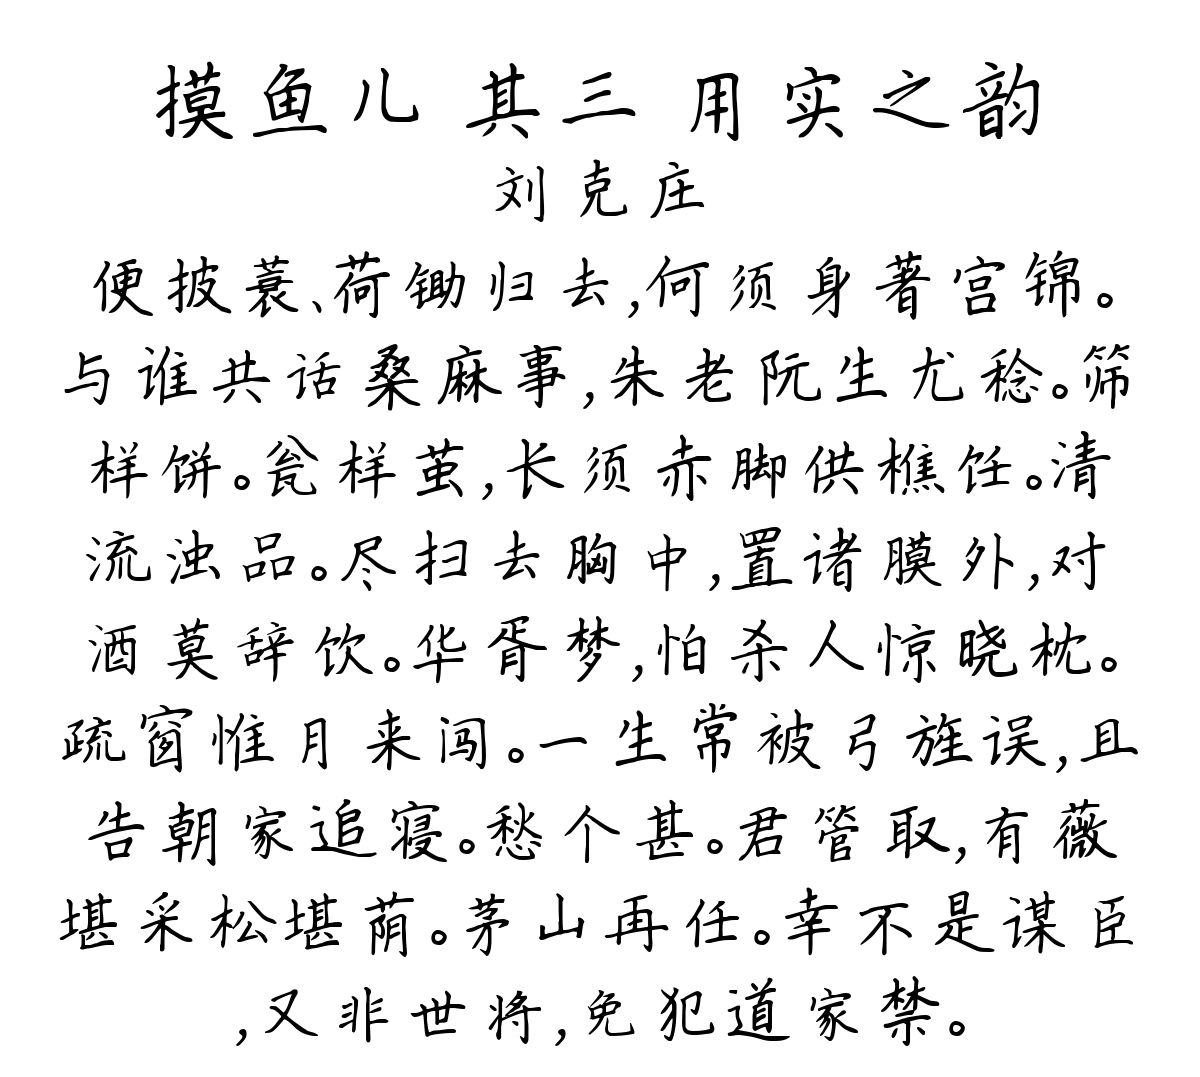 摸鱼儿 其三 用实之韵
刘克庄
便披蓑、荷锄归去,何须身著宫锦。
与谁共话桑麻事,朱老阮生尤稔。筛
样饼。瓮样茧,长须赤脚供樵饪。清
流浊品。尽扫去胸中,置诸膜外,对
酒莫辞饮。华胥梦,怕杀人惊晓枕。
疏窗惟月来闯。一生常被弓旌误,且
告朝家追寝。愁个甚。君管取,有薇
堪采松堪荫。茅山再任。幸不是谋臣
,又非世将,免犯道家禁。